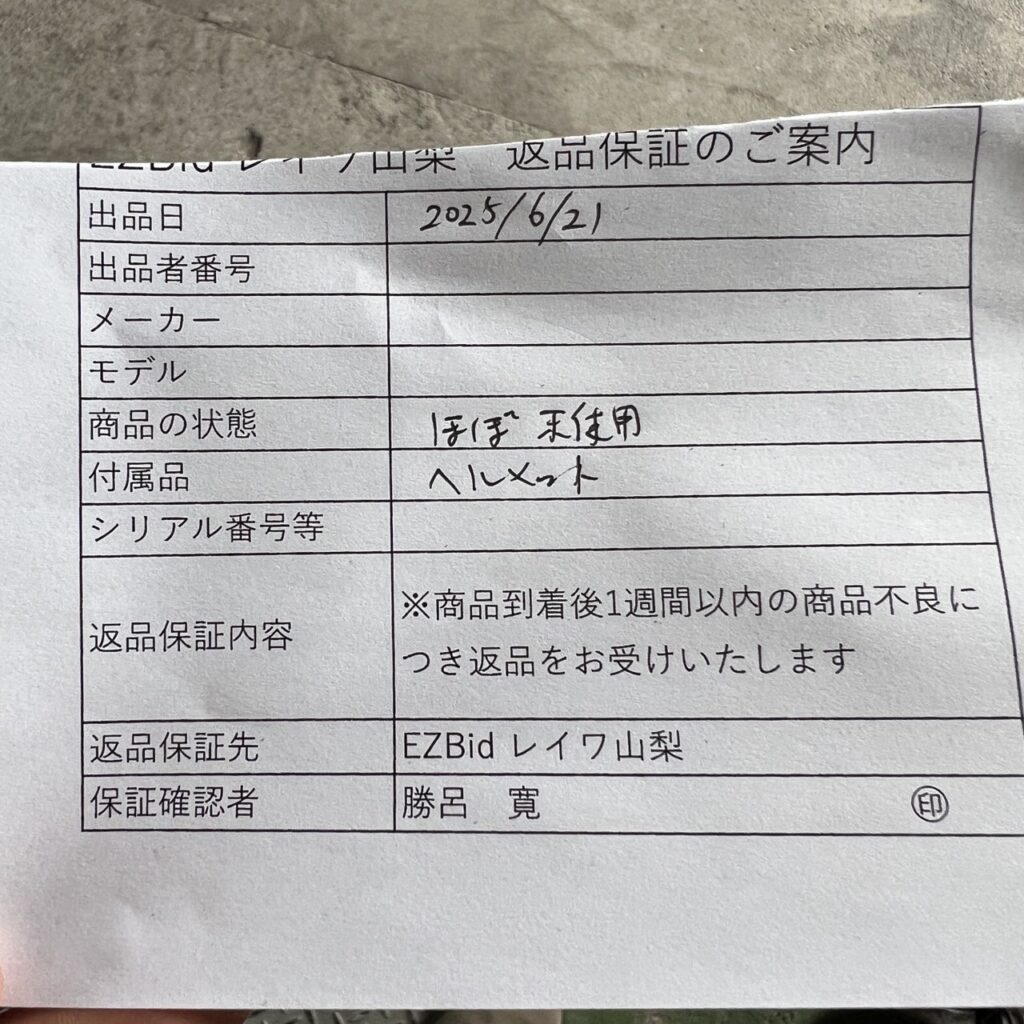 EZBid レイワ山梨　返品保証のご案内
出品日 2025/6/21
出品者番号
メーカー
モデル
商品の状態 ほぼ 未使用
付属品 ヘルメット
シリアル番号等
返品保証内容 ※商品到着後1週間以内の商品不良に
つき返品をお受けいたします
返品保証先 EZBid レイワ山梨
保証確認者 勝呂　寛 ㊞